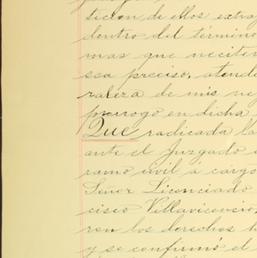 ticion de ellos extra
dentro del término
mas que neciten
sea preciso, atende
raleza de mis ne
prorogo en dicha
Que radicada la
ante el Juzgado
ramo civil á cargo
Señor Licenciado
cisco Villavicencio,
ron los derechos h
y se confirmó el